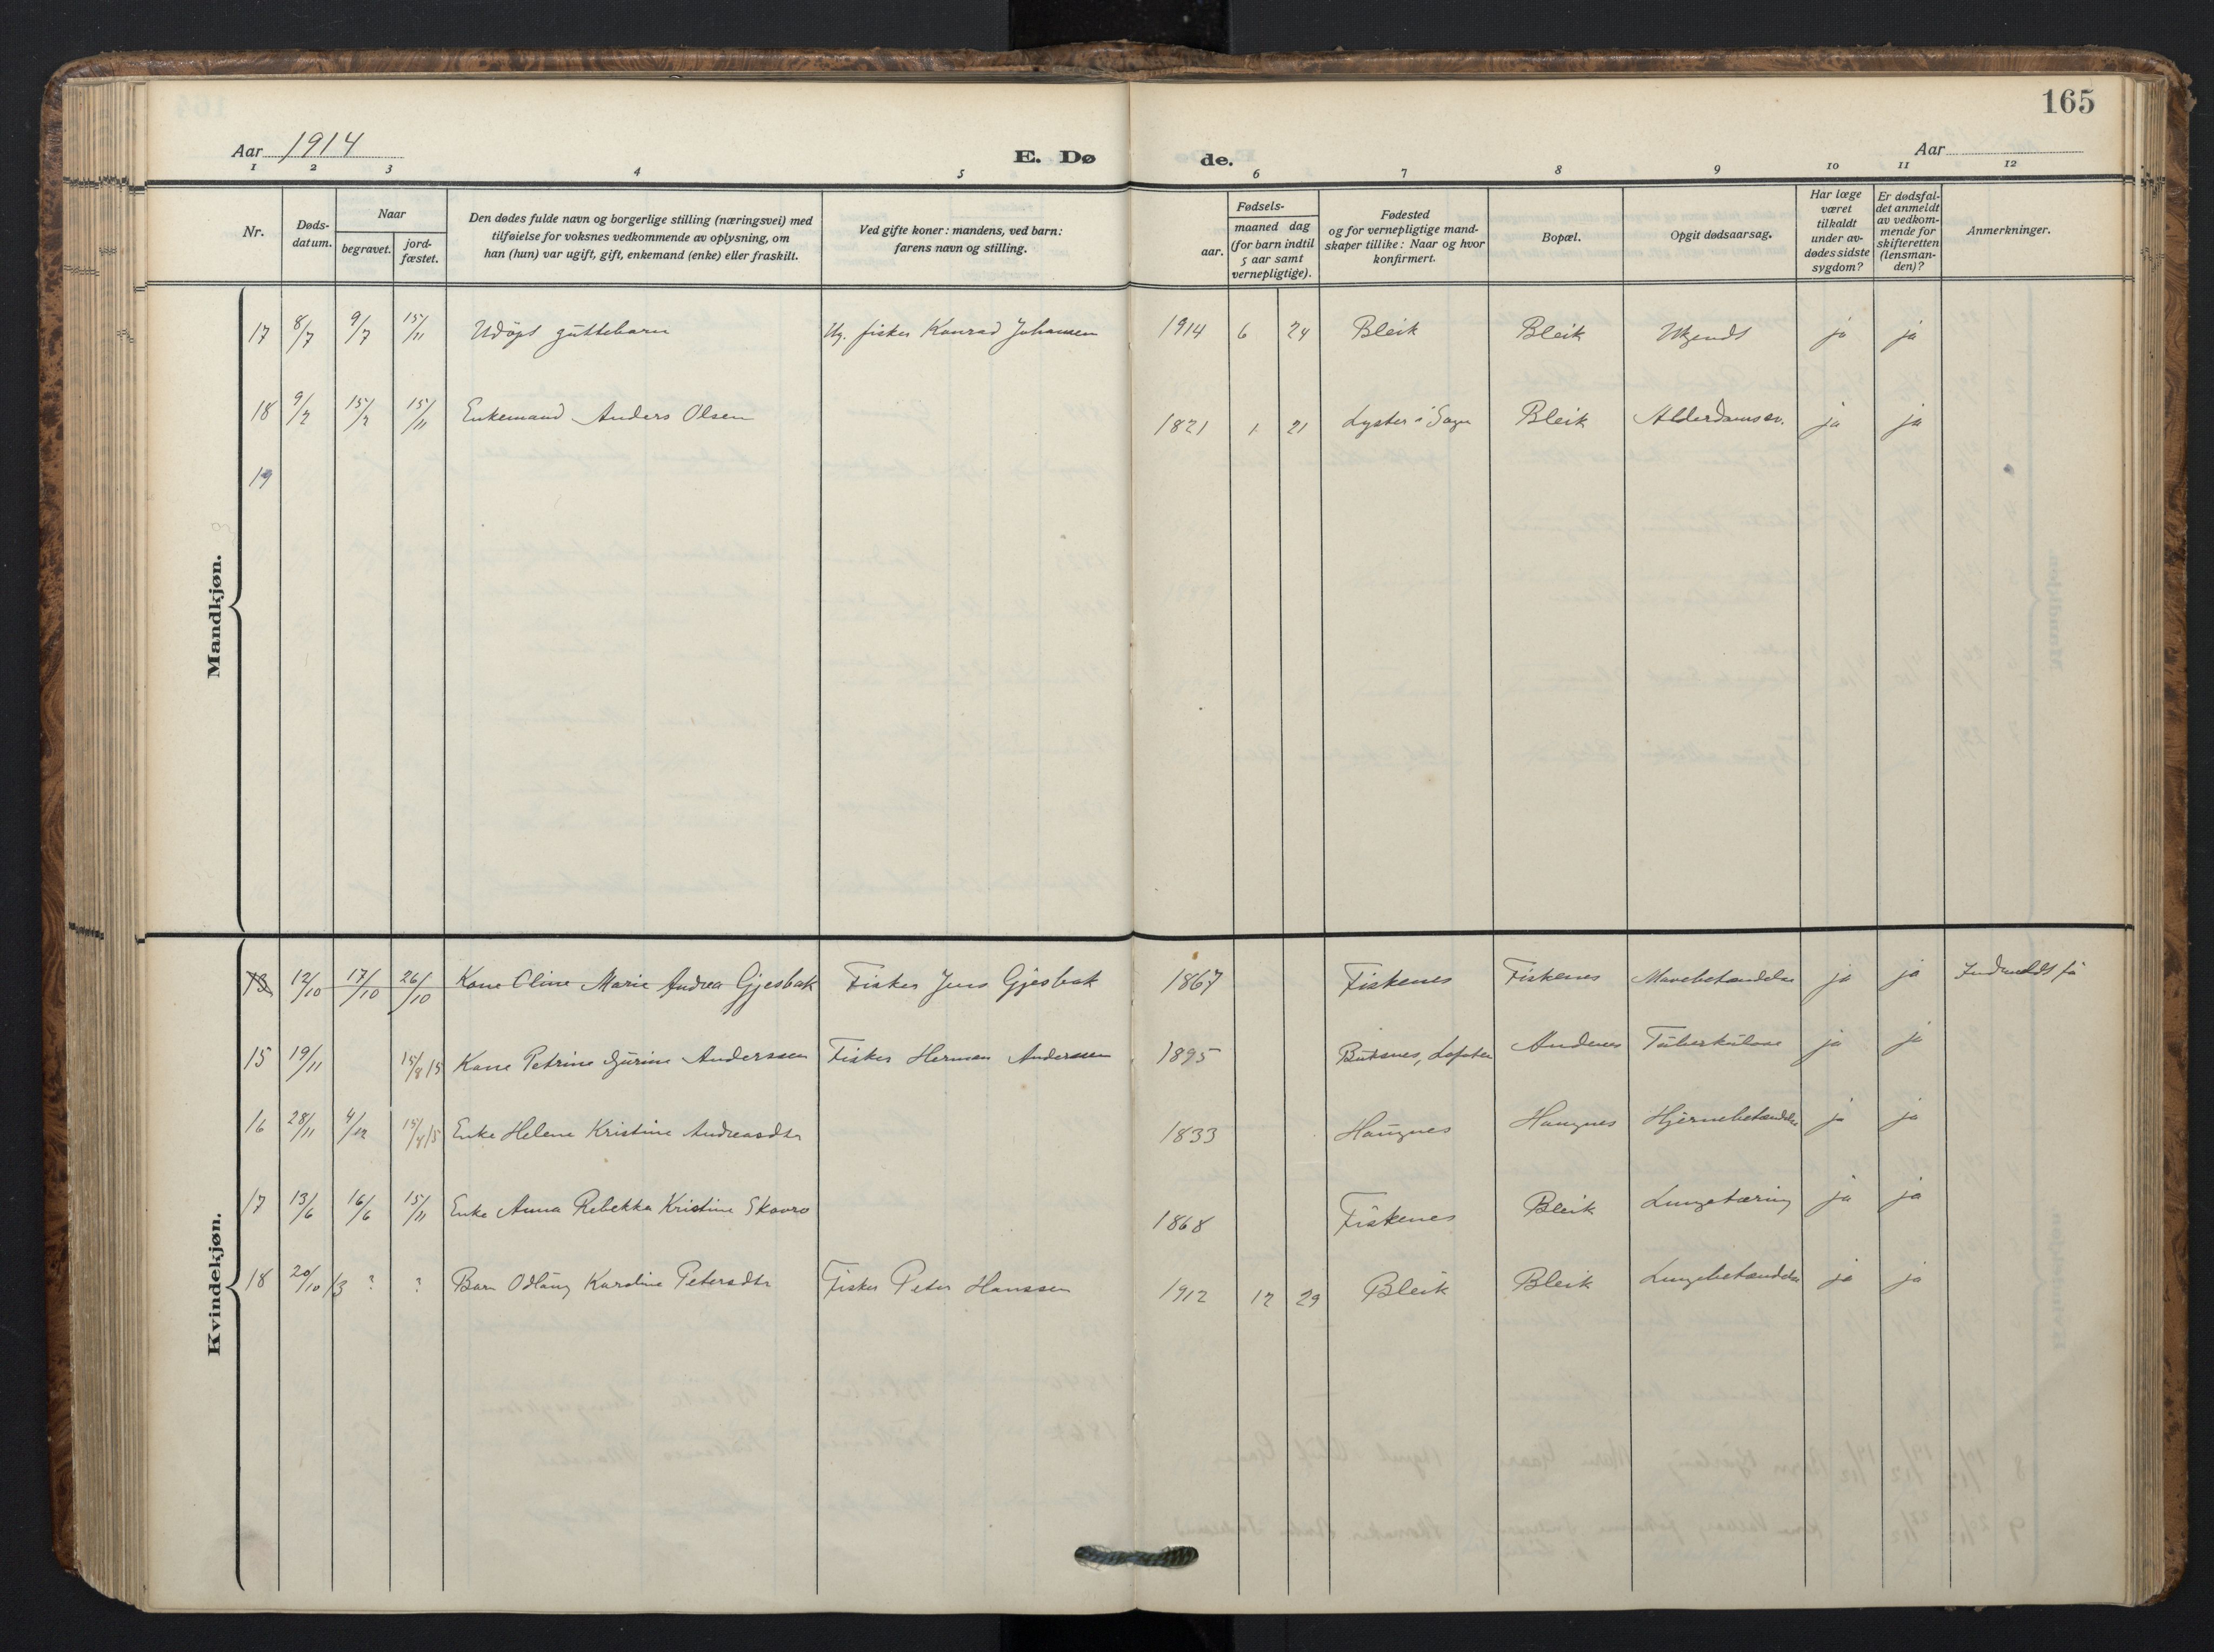 165
Aar 1914
E. Dø de.
Aar
1 2 3 4 5 6 7 8 9 10 11 12
Nr.
Døds-
datum.
Naar
begravet.
jord-
fæstet.
Den dødes fulde navn og borgerlige stilling (næringsvei) med
tilføielse for voksnes vedkommende av oplysning, om
han (hun) var ugift, gift, enkemand (enke) eller fraskilt.
Ved gifte koner: mandens, ved barn:
farens navn og stilling.
Fødsels-
aar.
maaned dag
(for barn indtil
5 aar samt
vernepligtige).
Fødested
og for vernepligtige mand-
skaper tillike: Naar og hvor
konfirmert.
Bopæl.
Opgit dødsaarsag.
Har læge
været
tilkaldt
under av-
dødes sidste
sygdom?
Er dødsfal-
det anmeldt
av vedkom-
mende for
skifteretten
(lensman-
den)?
Anmerkninger.
Mandkjøn.
17 8/7 9/7 15/11 Udøpt guttebarn Ug. fisker Konrad Johansen 1914 6 24 Bleik Bleik Ukjendt ja ja
18 9/7 15/7 15/11 Enkemand Anders Olsen 1821 1 21 Lyster i Sogn Bleik Alderdomssv. ja ja
19
Kvindekjøn.
12/10 17/10 26/10 Kone Oline Marie Andrea Gjesbak Fisker Jens Gjesbak 1867 Fiskenes Fiskenes Mavebetændelse ja ja
15 19/11 15/8 15 Kone Petrine Jurine Anderssen Fisker Herman Anderssen 1895 Buksnes, Lofoten Andenes Tuberkulose ja ja
16 28/11 4/12 15/8 15 Enke Helene Kristine Andreasdtr 1833 Haugnes Haugnes Hjernebetændelse ja ja
17 13/6 16/6 15/11 Enke Anna Rebekka Kristine Skavro 1868 Fiskenes Bleik Lungetæring ja ja
18 20/10 13 ? ? Barn Odlaug Karoline Petersdtr Fisker Peter Hanssen 1912 12 29 Bleik Bleik Lungebetændelse ja ja